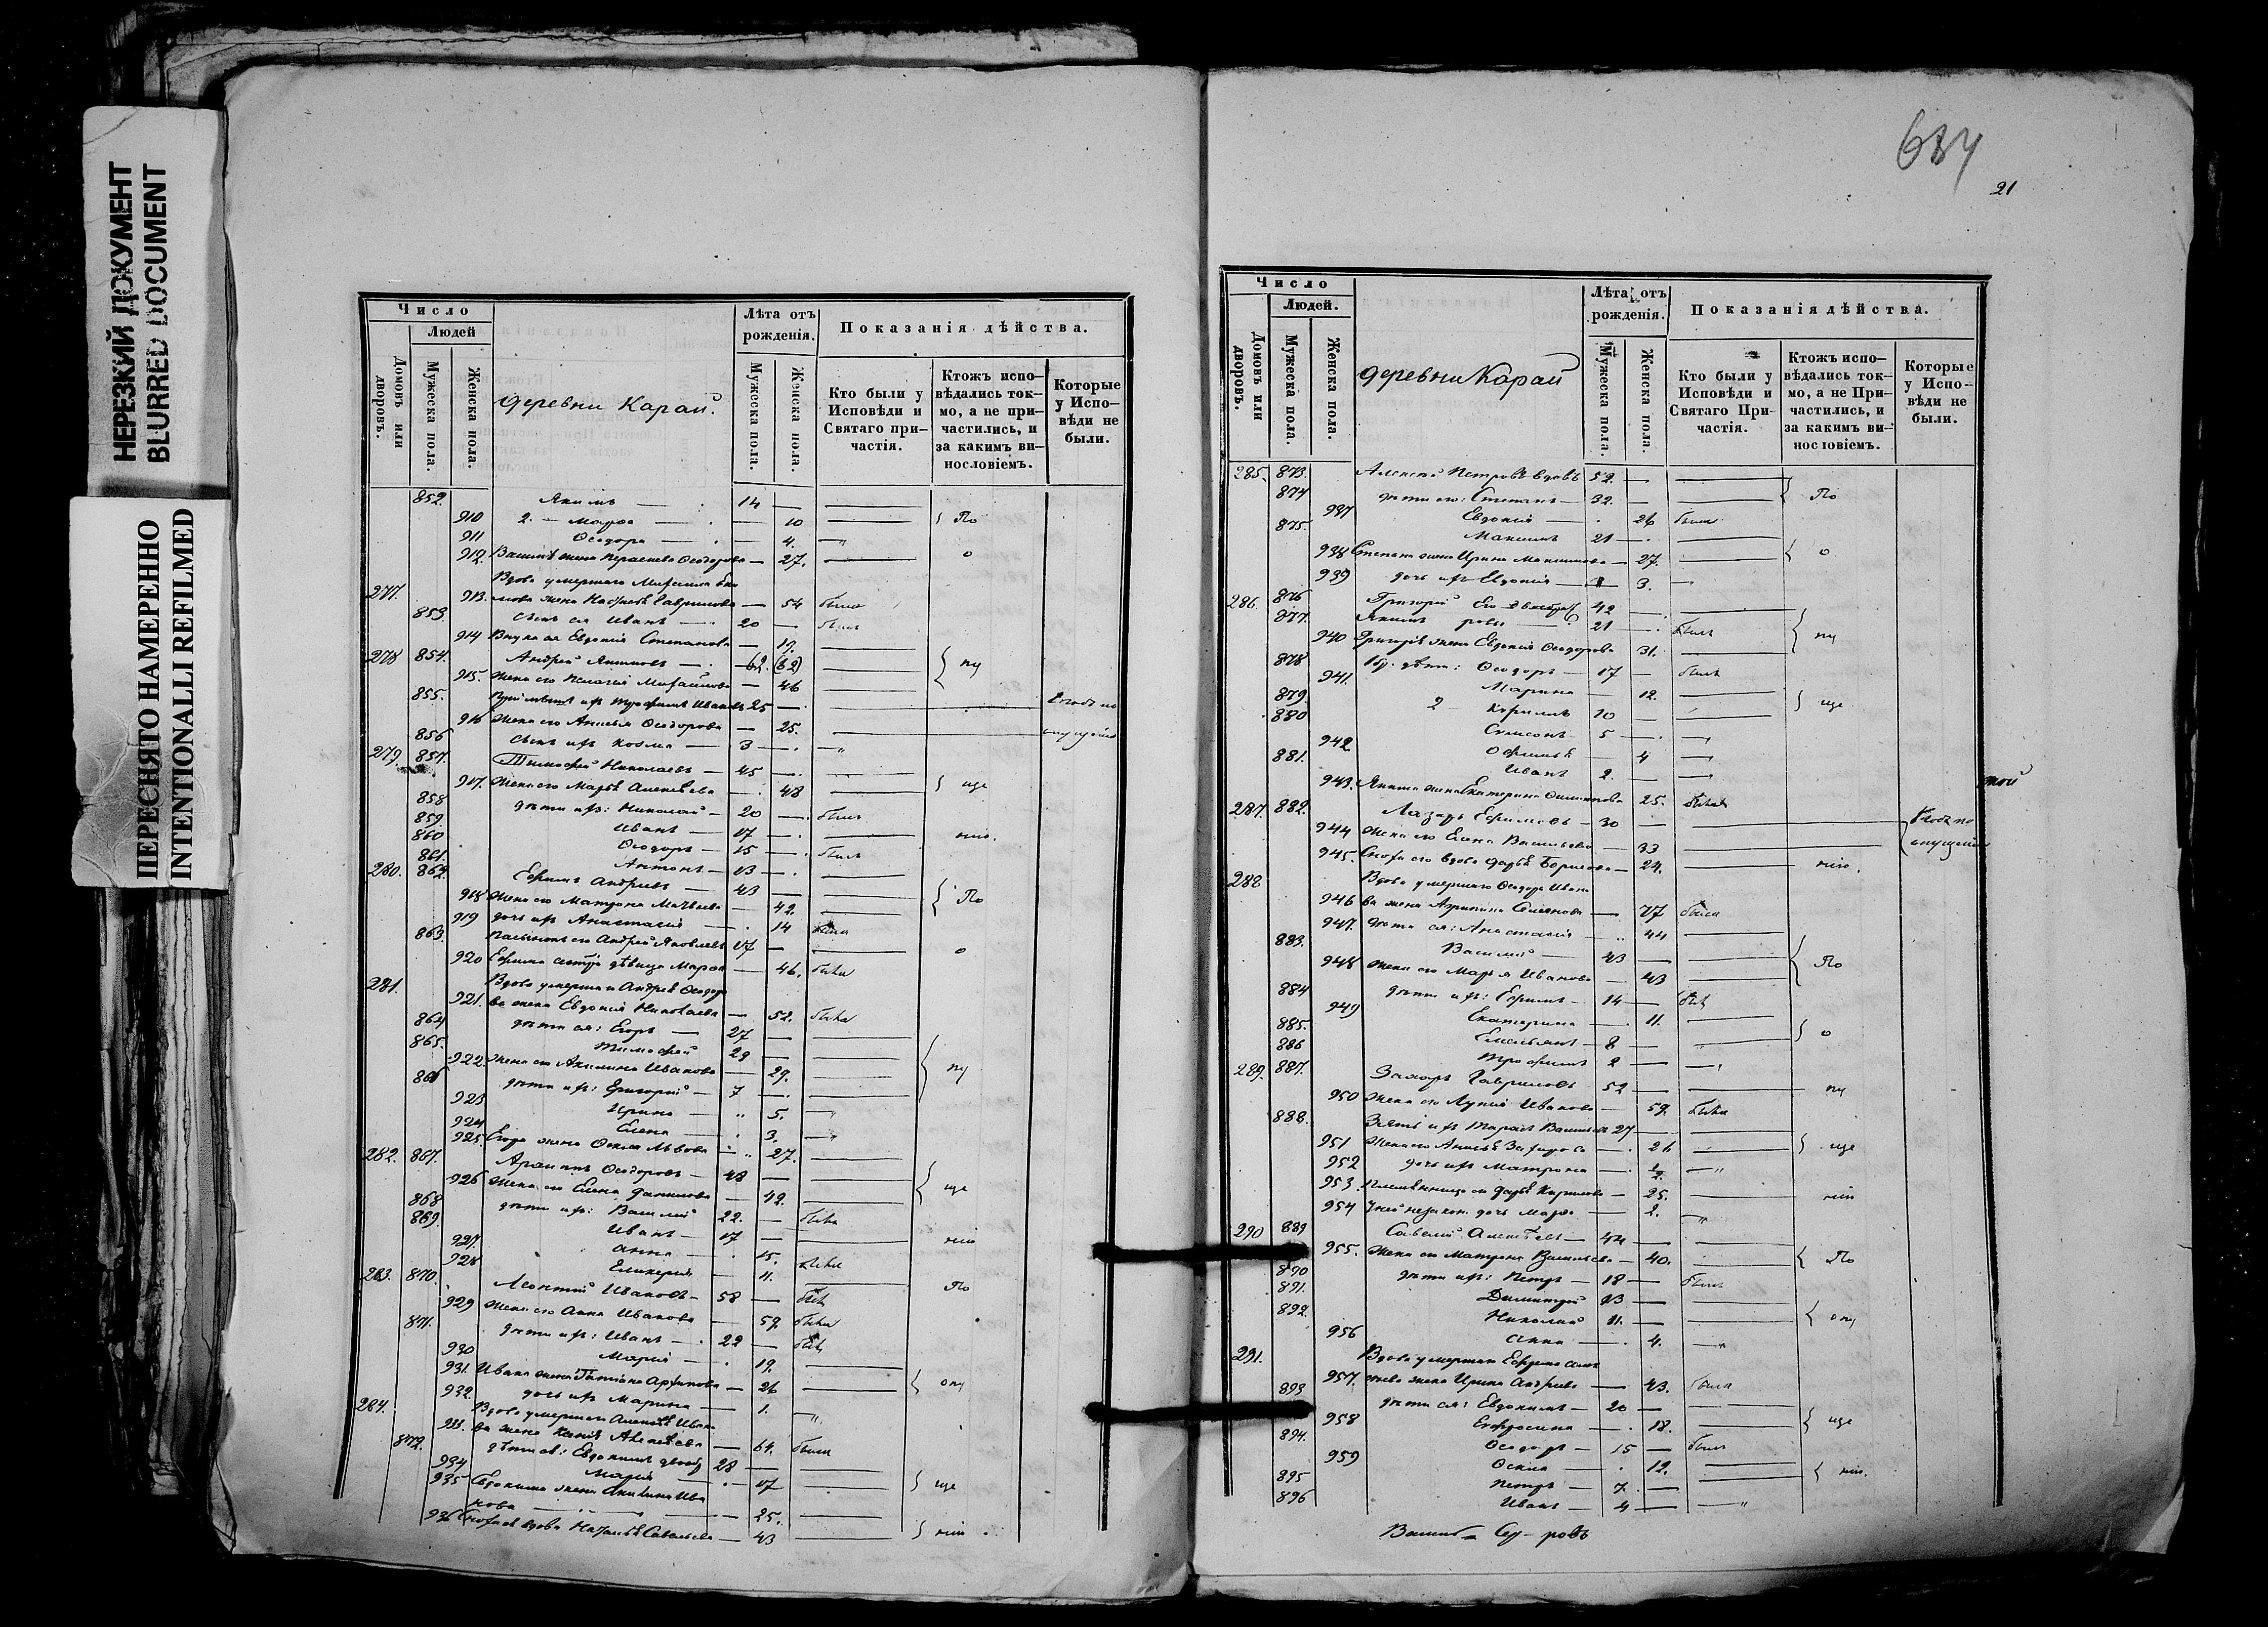 НЕРЕЗКИЙ ДОКУМЕНТ
BLURRED DOCUMENT
ПЕРЕСНЯТО НАМЕРЕННО
INTENTIONALLI REFILMED
Число
Людей
Домовъ или дворовъ.
Мужеска пола.
Женска пола.
деревни Карай.
Лѣта отъ рожденія.
Мужеска пола.
Женска пола.
Показанія дѣйства.
Кто были у Исповѣди и Святаго причастія.
Ктожъ исповѣдались токмо, а не причастились, и за какимъ винословіемъ.
Которые у Исповѣди не были.
852. Якимъ 14
910 2. Марѳа 10 По
911 Ѳеодора 4.
912. жена Ѳеодорова 27. о
Вдова умершаго
277. 913. жена Гаврилова 54 была
853. сынъ ея Иванъ 20 былъ
914 Внука ея Евдокія Степанова 19.
278 854. Андрей Якимовъ 62. (62) пу
915. жена его Пелагія Михайлова 46
855. Трофимъ Ивановъ 25
916 жена его Анисья Ѳеодорова 25.
856 сынъ ихъ Козма 3
279. 857. Тимоѳей Николаевъ 45
917. жена его Марья Алексѣева 48 ще
858 дѣти ихъ: Николай 20 былъ
859. Иванъ 17 нію.
860 Ѳеодоръ 15 былъ
861. Антонъ 13
280. 862. Ефимъ Андреевъ 43
918 жена его Матрона Матвѣева 42. По
919 дочь ихъ Анастасія 14 была
863. Андрей Яковлевъ 17 о
920 Ефима сестра дѣвица Марѳа 46. была
281. Вдова умершаго Андрея Ѳеодоро
921. ва жена Евдокія Николаева 52. была
864 дѣти ея: Егоръ 27
865. Тимоѳей 29
922. жена его Акилина Иванова 29. пу
866 дѣти ихъ: Григорій 7
923 Ирина 5.
924 Елена 3.
925. Егора жена Ѳекла Львова 27.
282. 867. Ѳеодоровъ 48
926 жена его Елена Данилова 42. ще
868 дѣти ихъ: Василій 22. былъ
869. Иванъ 17 нію
927. Анна 15. была
928 Гликерія 11.
283. 870. Леонтій Ивановъ 58 былъ По
929 жена его Анна Иванова 59 была
871. дѣти ихъ: Иванъ 22 былъ
930 Марія 19.
931. Ивана жена Татіана Архипова 26 опу
932. дочь ихъ Марина 1.
284. Вдова умершаго Алексѣя Ивано
933. ва жена Алексѣева 64. была
872. дѣти ея: Евдокимъ 28
934 Марія 17 ще
935 Евдокима жена Акилина Ива
нова 25.
936 Сноха ея вдова Наталья Савельева 43 нію
634
21
Число
Людей.
Домовъ или дворовъ.
Мужеска пола.
Женска пола.
деревни Карай
Лѣта отъ рожденія.
Мужеска пола.
Женска пола.
Показанія дѣйства.
Кто были у Исповѣди и Святаго Причастія.
Ктожъ исповѣдались токмо, а не Причастились, и за какимъ винословіемъ.
Которые у Исповѣди не были.
285. 873. Алексѣй Петровъ вдовъ 52.
874 дѣти его: Степанъ 32. По
937 Евдокія 26 была
875. Максимъ 21
938 Степана жена Ирина Максимова 27. о
939 дочь ихъ Евдокія 3.
286. 876 Григорій 42
877. Якимъ 21 былъ пу
940 Григорія жена Евдокія Ѳеодорова 31.
878 дѣти: Ѳеодоръ 17 былъ
941. Марина 12.
879. 2 Кириллъ 10 ще
880 Самсонъ 5
942 4
881. Иванъ 2.
943. Якима жена Екатерина 25. была
287. 882. Лазарь Ефимовъ 30
944 жена его Елена Васильева 33
945. Сноха его вдова Дарья Борисова 24. нію.
288 Вдова умершаго Ѳеодора Ивано
946 ва жена Агрипина 77 была
947. дѣти ея: Анастасія 44
883. Василій 43 По
948 жена его Марья Иванова 43
884 дѣти ихъ: Ефимъ 14 былъ
949 Екатерина 11.
885. Емельянъ 8 о
886 Трофимъ 2
289. 887. Захаръ Гавриловъ 52 пу
950 жена его Лукія Иванова 59. была
888. Зять ихъ Тарасъ Васильевъ 27
951 жена его Анисья Захарова 26 ще
952 дочь ихъ Матрона
953. Племянница его Дарья Кирилова 25. нію
954 У ней незакон. дочь Марѳа 2.
290 889 Савелій Алексѣевъ 44
955. жена его Матрона Васильева 40. По
890 дѣти ихъ: Петръ 18 былъ
891. Димитрій 13
892. Николай 11. опу
956 Анна 4.
291. Вдова умершаго Ефрема Алек
957. сѣева жена Ирина Андреева 43. была
893 дѣти ея: Евдокимъ 20
958 Евфросинія 18. ще
894. Ѳеодоръ 15 былъ
959 Ѳекла 12.
895 Петръ 7. нію.
896 Иванъ 4